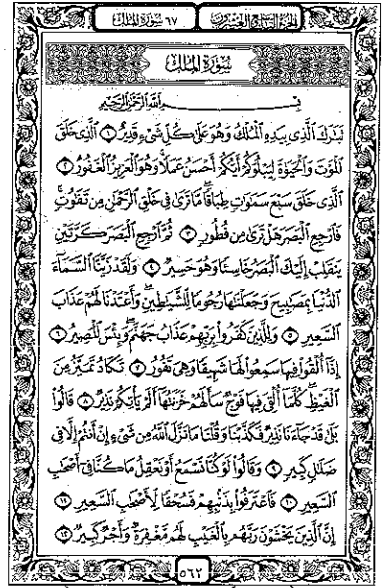 الجزء التاسع والعشرون ٦٧ سورة الملك
سورة الملك
بسم الله الرحمن الرحيم
تَبَٰرَكَ ٱلَّذِى بِيَدِهِ ٱلْمُلْكُ وَهُوَ عَلَىٰ كُلِّ شَىْءٍ قَدِيرٌ ١ ٱلَّذِى خَلَقَ
ٱلْمَوْتَ وَٱلْحَيَوٰةَ لِيَبْلُوَكُمْ أَيُّكُمْ أَحْسَنُ عَمَلًا وَهُوَ ٱلْعَزِيزُ ٱلْغَفُورُ ٢
ٱلَّذِى خَلَقَ سَبْعَ سَمَٰوَٰتٍ طِبَاقًا مَّا تَرَىٰ فِى خَلْقِ ٱلرَّحْمَٰنِ مِن تَفَٰوُتٍ
فَٱرْجِعِ ٱلْبَصَرَ هَلْ تَرَىٰ مِن فُطُورٍ ٣ ثُمَّ ٱرْجِعِ ٱلْبَصَرَ كَرَّتَيْنِ
يَنقَلِبْ إِلَيْكَ ٱلْبَصَرُ خَاسِئًا وَهُوَ حَسِيرٌ ٤ وَلَقَدْ زَيَّنَّا ٱلسَّمَآءَ
ٱلدُّنْيَا بِمَصَٰبِيحَ وَجَعَلْنَٰهَا رُجُومًا لِّلشَّيَٰطِينِ وَأَعْتَدْنَا لَهُمْ عَذَابَ
ٱلسَّعِيرِ ٥ وَلِلَّذِينَ كَفَرُوا۟ بِرَبِّهِمْ عَذَابُ جَهَنَّمَ وَبِئْسَ ٱلْمَصِيرُ ٦
إِذَآ أُلْقُوا۟ فِيهَا سَمِعُوا۟ لَهَا شَهِيقًا وَهِىَ تَفُورُ ٧ تَكَادُ تَمَيَّزُ مِنَ
ٱلْغَيْظِ كُلَّمَآ أُلْقِىَ فِيهَا فَوْجٌ سَأَلَهُمْ خَزَنَتُهَآ أَلَمْ يَأْتِكُمْ نَذِيرٌ ٨ قَالُوا۟
بَلَىٰ قَدْ جَآءَنَا نَذِيرٌ فَكَذَّبْنَا وَقُلْنَا مَا نَزَّلَ ٱللَّهُ مِن شَىْءٍ إِنْ أَنتُمْ إِلَّا فِى
ضَلَٰلٍ كَبِيرٍ ٩ وَقَالُوا۟ لَوْ كُنَّا نَسْمَعُ أَوْ نَعْقِلُ مَا كُنَّا فِىٓ أَصْحَٰبِ
ٱلسَّعِيرِ ١٠ فَٱعْتَرَفُوا۟ بِذَنۢبِهِمْ فَسُحْقًا لِّأَصْحَٰبِ ٱلسَّعِيرِ ١١
إِنَّ ٱلَّذِينَ يَخْشَوْنَ رَبَّهُم بِٱلْغَيْبِ لَهُم مَّغْفِرَةٌ وَأَجْرٌ كَبِيرٌ ١٢
٥٦٢